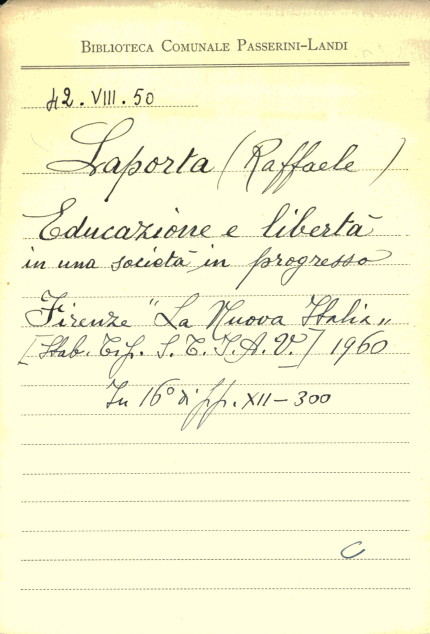 BIBLIOTECA COMUNALE PASSERINI-LANDI
42.VIII.50
Laporta (Raffaele)
Educazione e libertà
in una società in progresso
Firenze "La Nuova Italia„
[Stab. Tip. S.T.I.A.V.] 1960
In 16° di pp. XII-300
C